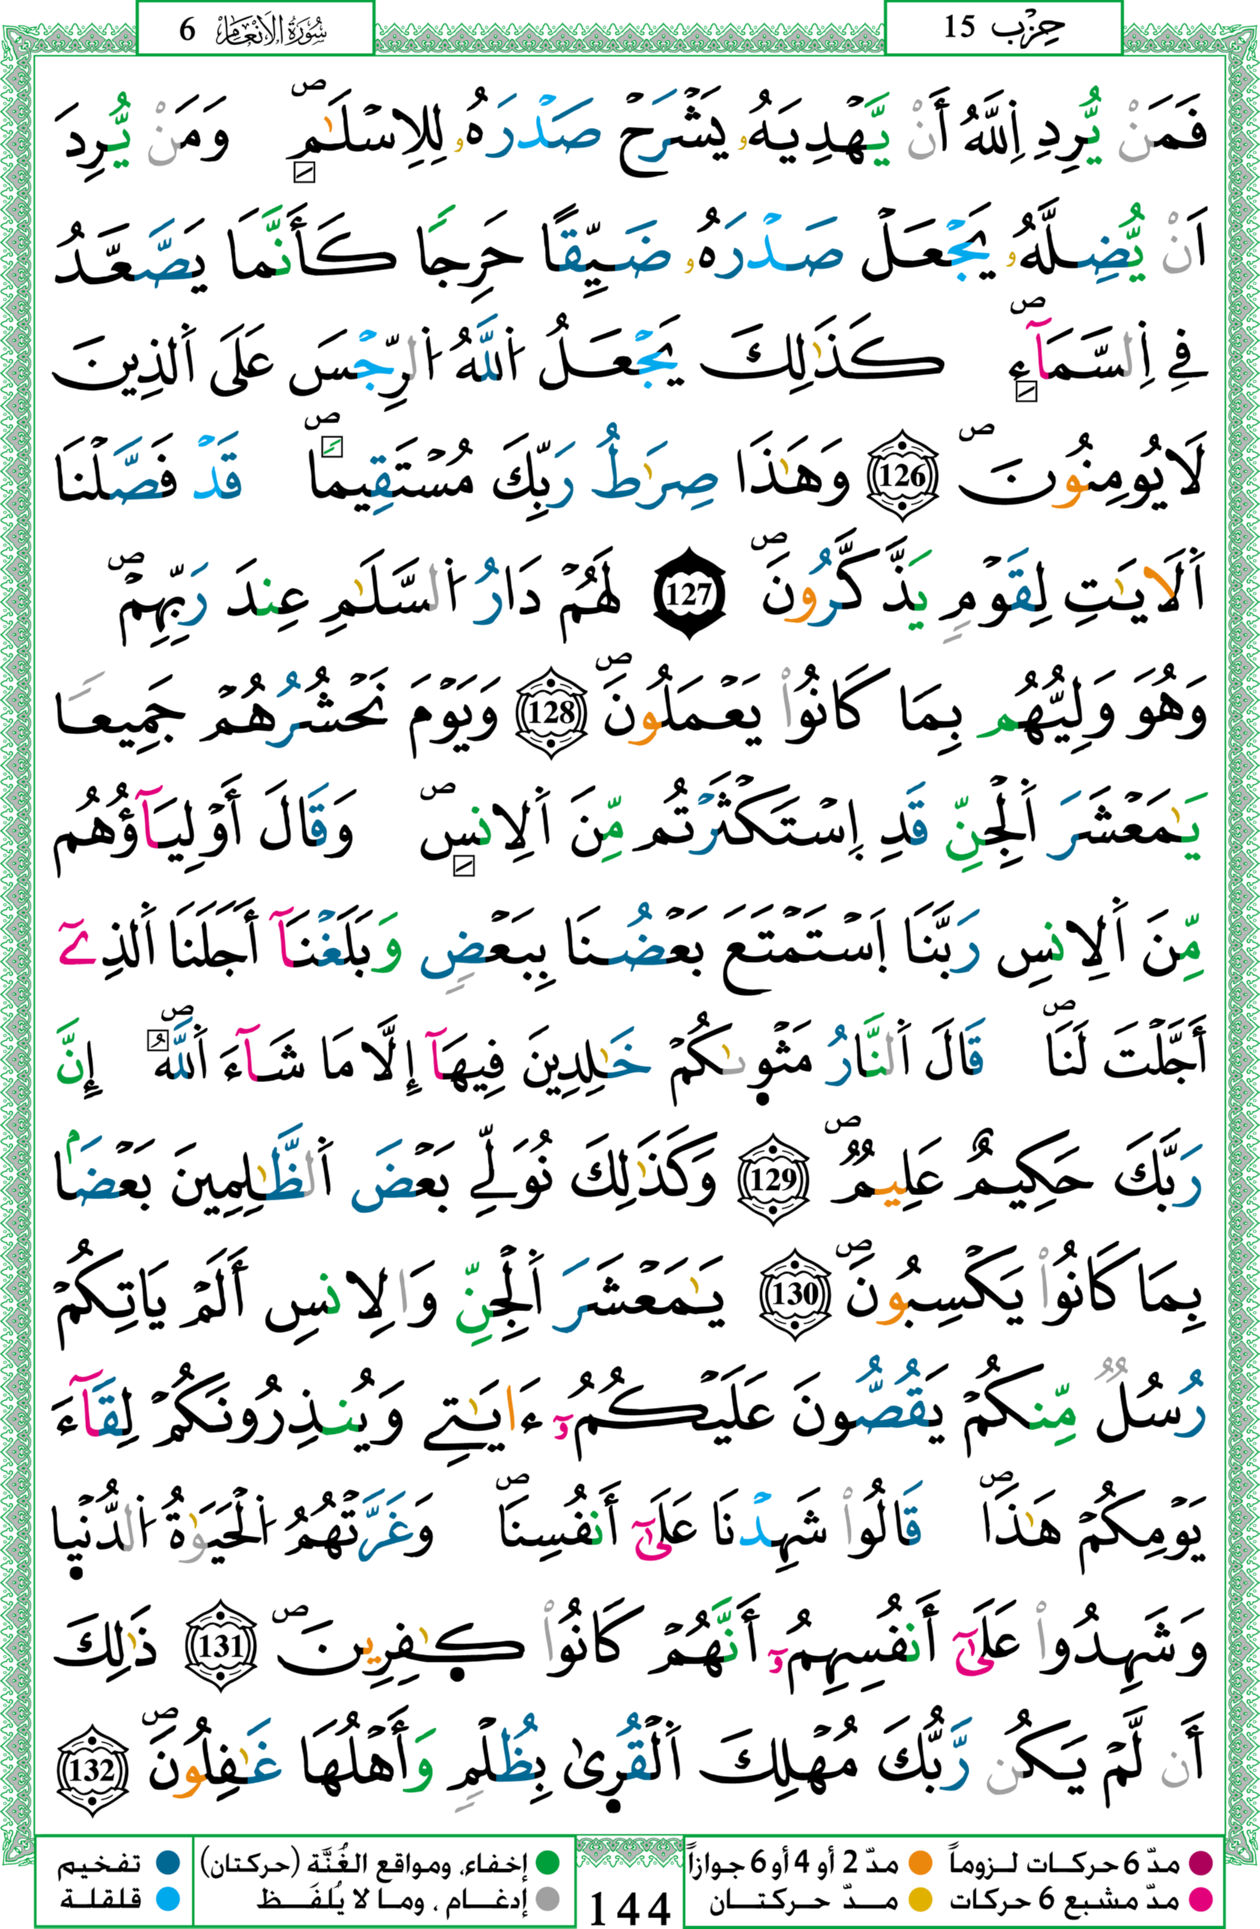 حِزْب 15
سُورَةُ الْأَنْعَامِ 6
فَمَنْ يُّرِدِ اِ۬للَّهُ أَنْ يَّهْدِيَهُۥ يَشْرَحْ صَدْرَهُۥ لِلِاسْلَٰمِۖ وَمَنْ يُّرِدَ
اَنْ يُّضِلَّهُۥ يَجْعَلْ صَدْرَهُۥ ضَيِّقاً حَرِجاً كَأَنَّمَا يَصَّعَّدُ
فِے اِ۬لسَّمَآءِۖ كَذَٰلِكَ يَجْعَلُ اُ۬للَّهُ اُ۬لرِّجْسَ عَلَى اَ۬لذِينَ
لَايُومِنُونَۖ 126 وَهَٰذَا صِرَٰطُ رَبِّكَ مُسْتَقِيماًۖ قَدْ فَصَّلْنَا
اَ۬لَايَٰتِ لِقَوْمٍ يَذَّكَّرُونَۖ 127 لَهُمْ دَارُ اُ۬لسَّلَٰمِ عِندَ رَبِّهِمْۖ
وَهُوَ وَلِيُّهُم بِمَا كَانُواْ يَعْمَلُونَۖ 128 وَيَوْمَ نَحْشُرُهُمْ جَمِيعاً
يَٰمَعْشَرَ اَ۬لْجِنِّ قَدِ اِ۪سْتَكْثَرْتُم مِّنَ اَ۬لِانسِۖ وَقَالَ أَوْلِيَآؤُهُم
مِّنَ اَ۬لِانسِ رَبَّنَا اَ۪سْتَمْتَعَ بَعْضُنَا بِبَعْضٍ وَبَلَغْنَآ أَجَلَنَا اَ۬لذِےٓ
أَجَّلْتَ لَنَاۖ قَالَ اَ۬لنَّارُ مَثْو۪ىٰكُمْ خَٰلِدِينَ فِيهَآ إِلَّا مَا شَآءَ اَ۬للَّهُ إِنَّ
رَبَّكَ حَكِيمٌ عَلِيمٌۖ 129 وَكَذَٰلِكَ نُوَلِّے بَعْضَ اَ۬لظَّٰلِمِينَ بَعْضاَۢ
بِمَا كَانُواْ يَكْسِبُونَۖ 130 يَٰمَعْشَرَ اَ۬لْجِنِّ وَالِانسِ أَلَمْ يَاتِكُمْ
رُسُلٌ مِّنكُمْ يَقُصُّونَ عَلَيْكُمُۥٓ ءَايَٰتِے وَيُنذِرُونَكُمْ لِقَآءَ
يَوْمِكُمْ هَٰذَاۖ قَالُواْ شَهِدْنَا عَلَىٰٓ أَنفُسِنَاۖ وَغَرَّتْهُمُ اُ۬لْحَيَوٰةُ اُ۬لدُّنْي۪ا
وَشَهِدُواْ عَلَىٰٓ أَنفُسِهِمُۥٓ أَنَّهُمْ كَانُواْ كٰ۪فِرِينَۖ 131 ذَٰلِكَ
أَن لَّمْ يَكُن رَّبُّكَ مُهْلِكَ اَ۬لْقُر۪ىٰ بِظُلْمٍ وَأَهْلُهَا غَٰفِلُونَۖ 132
مدّ 6 حركات لـزوماً مدّ 2 أو 4 أو 6 جوازاً إخفاء، ومواقع الغُنَّة (حركتان) تفخيم
مدّ مشبع 6 حركات مــدّ حركتــان إدغام ، وما لا يُلفَــظ قلقلة
144